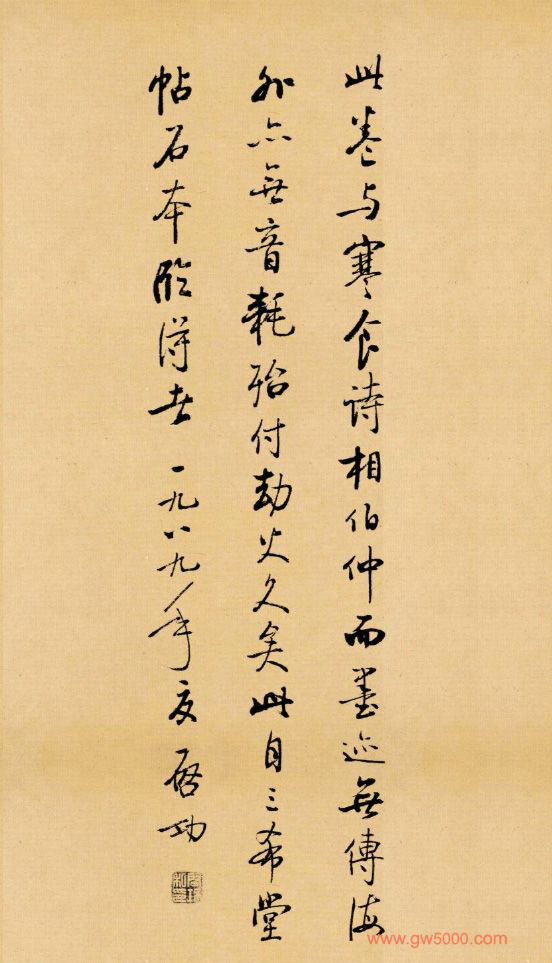 此卷与寒食诗相伯仲而墨迹無傳海
外亦無音耗殆付劫火久矣此自三希堂
帖石本臨得者 一九八九年夏 啓功
www.gw5000.com